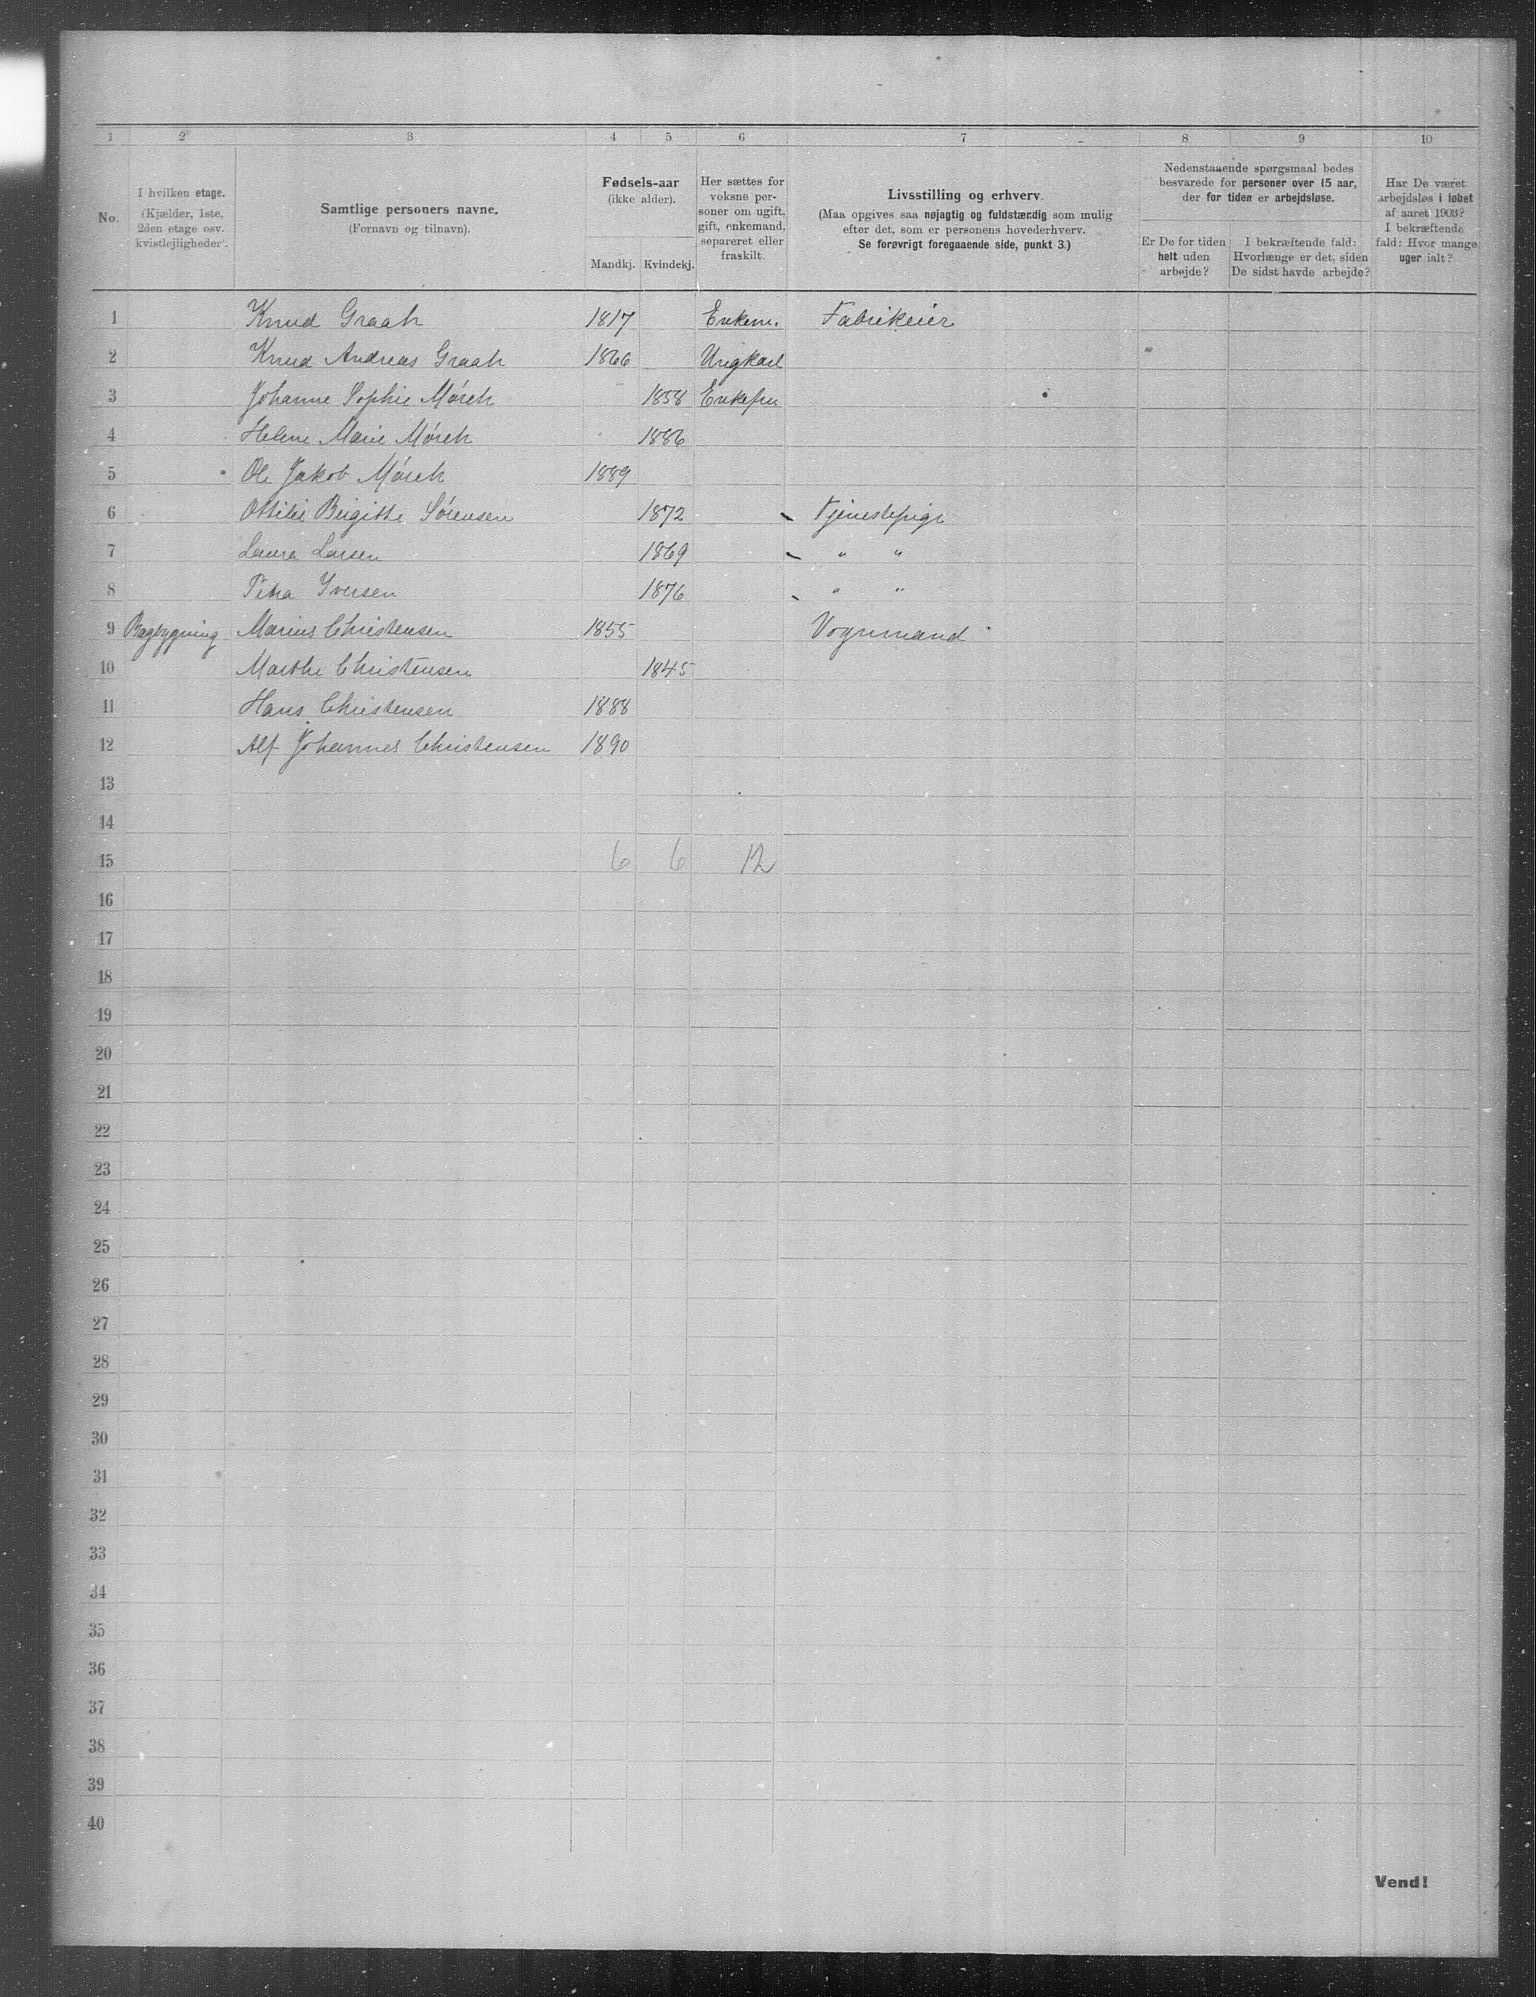 1 2 3 4 5 6 7 8 9 10
No.
I hvilken etage.
(Kjælder, 1ste,
2den etage osv.
kvistlejligheder).
Samtlige personers navne.
(Fornavn og tilnavn).
Fødsels-aar
(ikke alder).
Mandkj. Kvindekj.
Her sættes for
voksne per-
soner om ugift,
gift, enkemand,
separeret eller
fraskilt.
Livsstilling og erhverv.
(Maa opgives saa nøjagtig og fuldstændig som mulig
efter det, som er personens hovederhverv.
Se forøvrigt foregaaende side, punkt 3.)
Nedenstaaende spørgsmaal bedes
besvarede for personer over 15 aar,
der for tiden er arbejdsløse.
Er De for tiden
helt uden
arbejde?
I bekræftende fald:
Hvorlænge er det, siden
De sidst havde arbejde?
Har De været
arbejdsløs i løbet
af aaret 1903?
I bekræftende
fald: Hvor mange
uger ialt?
1 Knud Graah 1817 Enkem. Fabrikeier
2 Knud Andreas Graah 1866 Ungkarl
3 Johanne Sophie Mørch 1858 Enkefru
4 Helene Marie Mørch 1886
5 Ole Jakob Mørch 1889
6 Ottilie Birgitte Sørensen 1872 Tjenestepige
7 Laura Larsen 1869 " "
8 Petra Iversen 1876 " "
9 Bagbygning Marius Christensen 1855 Vognmand
10 Marthe Christensen 1845
11 Hans Christensen 1888
12 Alf Johannes Christensen 1890
13
14
15 6 6 12
16
17
18
19
20
21
22
23
24
25
26
27
28
29
30
31
32
33
34
35
36
37
38
39
40
Vend!